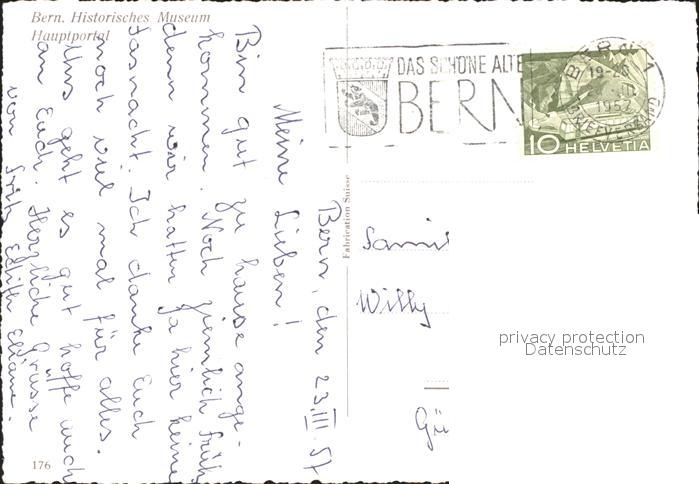 Bern. Historisches Museum
Hauptportal
DAS SCHÖNE ALTE
BERN
BERN 1
19-20
1957
BRIEFVERSAND
10 HELVETIA
Bern, den 23. III. 57
Meine Lieben!
Bin gut zu hause ange-
kommen. Noch ziemlich früh
denn wir hatten ja hier keine
Fasnacht. Ich danke Euch
noch viel mal für alles.
Uns geht es gut hoffe auch
an Euch. Herzliche Grüsse
von Fritz Edith
Fabrication Suisse
Willy
Gü
privacy protection
Datenschutz
176